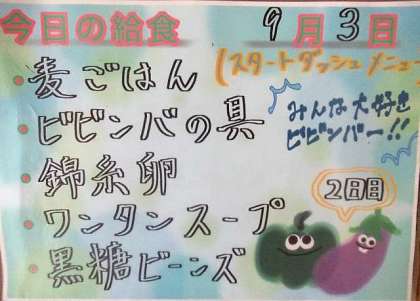 今日の給食 9月3日
(スタートダッシュメニュー
・麦ごはん
・ビビンバの具
みんな大好き
ビビンバー!!
・錦糸卵
2日目
・ワンタンスープ
・黒糖ビーンズ